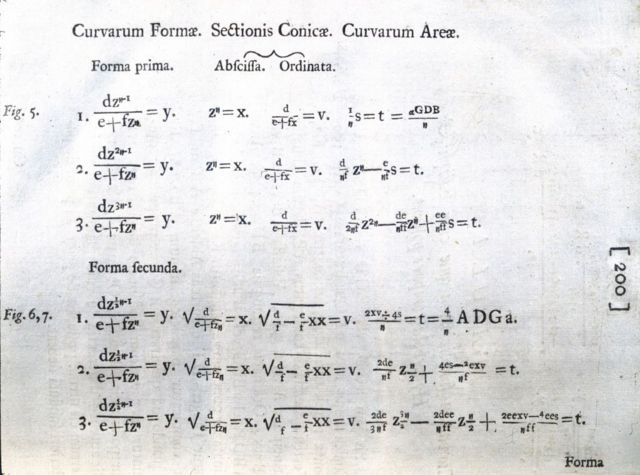 Curvarum Formæ. Sectionis Conicæ. Curvarum Areæ.
Forma prima. Abſciſſa. Ordinata.
Fig. 5. 1. dz^{η-1}/(e+fz^η) = y. z^η = x. d/(e+fx) = v. 1/η s = t = αGDB/η
2. dz^{2η-1}/(e+fz^η) = y. z^η = x. d/(e+fx) = v. d/ηf z^η − e/ηf s = t.
3. dz^{3η-1}/(e+fz^η) = y. z^η = x. d/(e+fx) = v. d/2ηf z^{2η} − de/ηff z^η + ee/ηff s = t.
Forma ſecunda.
Fig. 6, 7. 1. dz^{½η-1}/(e+fz^η) = y. √d/(e+fz^η) = x. √d/f − e/f xx = v. (2xv÷4s)/η = t = 4/η ADGa.
2. dz^{½η-1}/(e+fz^η) = y. √d/(e+fz^η) = x. √d/f − e/f xx = v. 2de/ηf z^{η/2} + (4es−2exv)/ηf = t.
3. dz^{½η-1}/(e+fz^η) = y. √d/(e+fz^η) = x. √d/f − e/f xx = v. 2de/3ηf z^{3η/2} − 2dee/ηff z^{η/2} + (2eexv−4ees)/ηff = t.
[ 200 ]
Forma